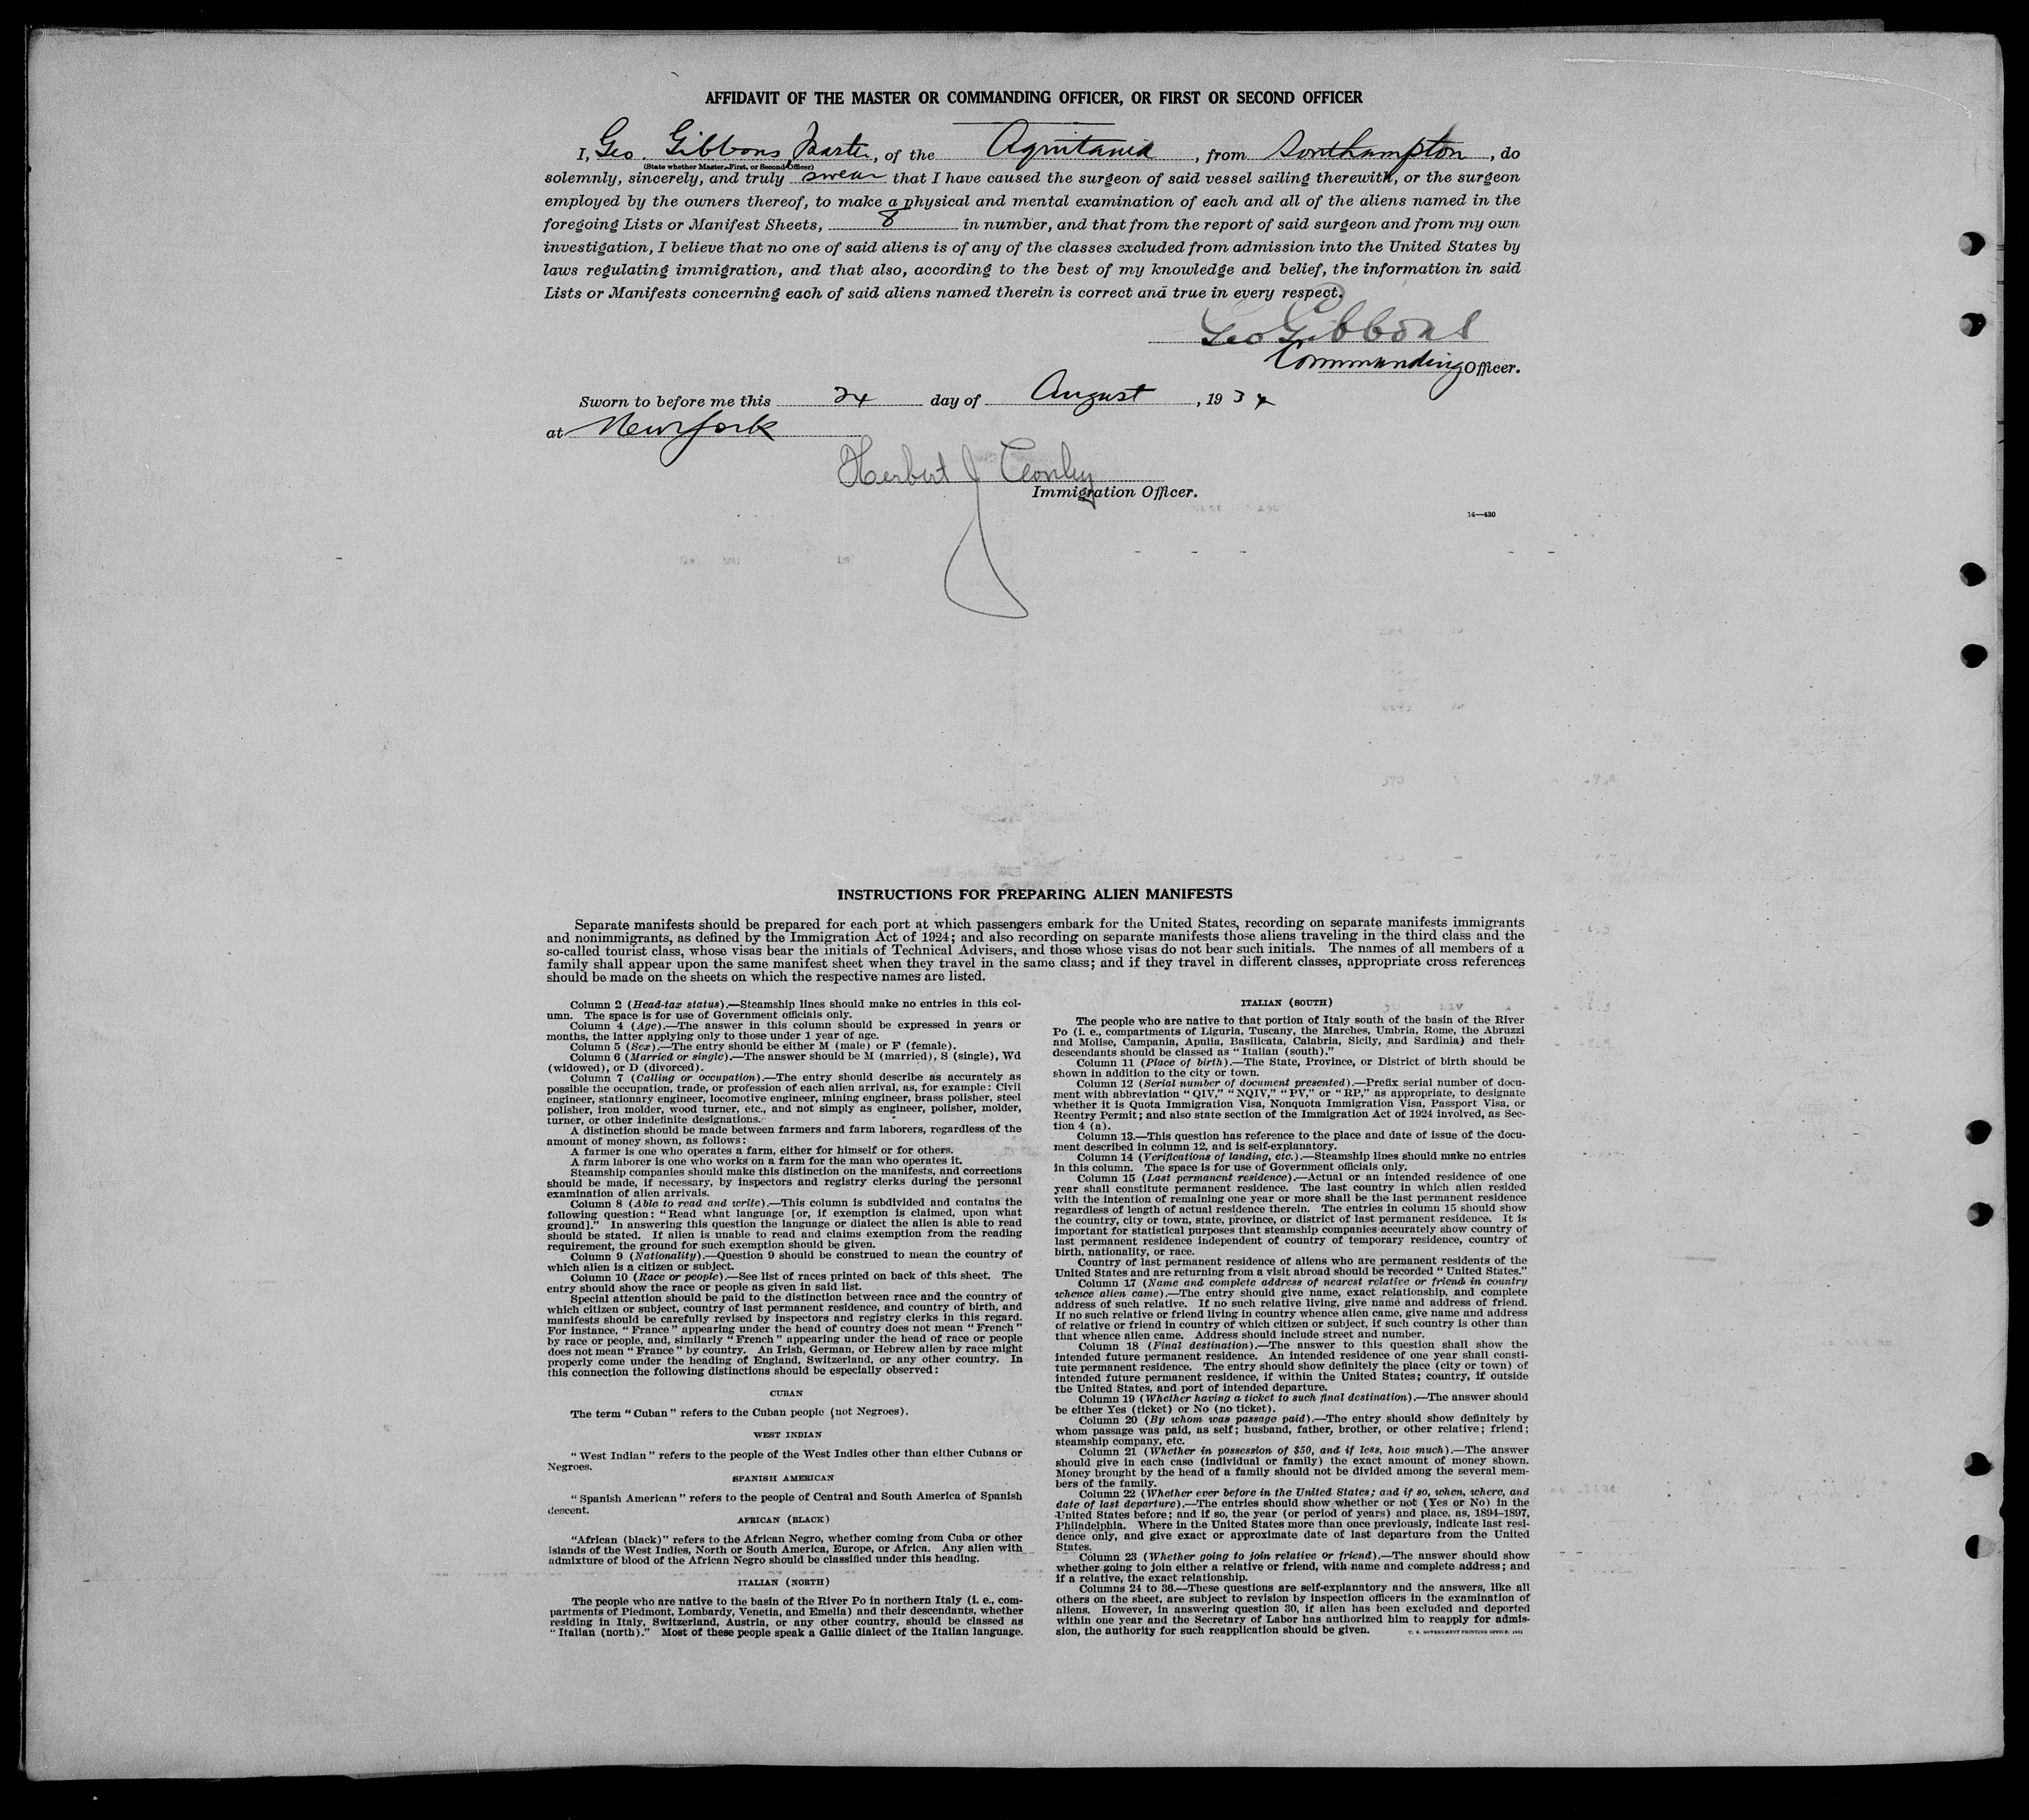 AFFIDAVIT OF THE MASTER OR COMMANDING OFFICER, OR FIRST OR SECOND OFFICER
I, Geo. Gibbons Master, of the Aquitania, from Southampton, do
(State whether Master, First, or Second Officer)
solemnly, sincerely, and truly swear that I have caused the surgeon of said vessel sailing therewith, or the surgeon
employed by the owners thereof, to make a physical and mental examination of each and all of the aliens named in the
foregoing Lists or Manifest Sheets, 8 in number, and that from the report of said surgeon and from my own
investigation, I believe that no one of said aliens is of any of the classes excluded from admission into the United States by
laws regulating immigration, and that also, according to the best of my knowledge and belief, the information in said
Lists or Manifests concerning each of said aliens named therein is correct and true in every respect.
Geo Gibbons
Commanding Officer.
Sworn to before me this 24 day of August, 193
at New York
Herbert J
Immigration Officer.
14—430
INSTRUCTIONS FOR PREPARING ALIEN MANIFESTS
Separate manifests should be prepared for each port at which passengers embark for the United States, recording on separate manifests immigrants
and nonimmigrants, as defined by the Immigration Act of 1924; and also recording on separate manifests those aliens traveling in the third class and the
so-called tourist class, whose visas bear the initials of Technical Advisers, and those whose visas do not bear such initials. The names of all members of a
family shall appear upon the same manifest sheet when they travel in the same class; and if they travel in different classes, appropriate cross references
should be made on the sheets on which the respective names are listed.
Column 2 (Head-tax status).—Steamship lines should make no entries in this col-
umn. The space is for use of Government officials only.
Column 4 (Age).—The answer in this column should be expressed in years or
months, the latter applying only to those under 1 year of age.
Column 5 (Sex).—The entry should be either M (male) or F (female).
Column 6 (Married or single).—The answer should be M (married), S (single), Wd
(widowed), or D (divorced).
Column 7 (Calling or occupation).—The entry should describe as accurately as
possible the occupation, trade, or profession of each alien arrival, as, for example: Civil
engineer, stationary engineer, locomotive engineer, mining engineer, brass polisher, steel
polisher, iron molder, wood turner, etc., and not simply as engineer, polisher, molder,
turner, or other indefinite designations.
A distinction should be made between farmers and farm laborers, regardless of the
amount of money shown, as follows:
A farmer is one who operates a farm, either for himself or for others.
A farm laborer is one who works on a farm for the man who operates it.
Steamship companies should make this distinction on the manifests, and corrections
should be made, if necessary, by inspectors and registry clerks during the personal
examination of alien arrivals.
Column 8 (Able to read and write).—This column is subdivided and contains the
following question: "Read what language [or, if exemption is claimed, upon what
ground]." In answering this question the language or dialect the alien is able to read
should be stated. If alien is unable to read and claims exemption from the reading
requirement, the ground for such exemption should be given.
Column 9 (Nationality).—Question 9 should be construed to mean the country of
which alien is a citizen or subject.
Column 10 (Race or people).—See list of races printed on back of this sheet. The
entry should show the race or people as given in said list.
Special attention should be paid to the distinction between race and the country of
which citizen or subject, country of last permanent residence, and country of birth, and
manifests should be carefully revised by inspectors and registry clerks in this regard.
For instance, "France" appearing under the head of country does not mean "French"
by race or people, and, similarly "French" appearing under the head of race or people
does not mean "France" by country. An Irish, German, or Hebrew alien by race might
properly come under the heading of England, Switzerland, or any other country. In
this connection the following distinctions should be especially observed:
CUBAN
The term "Cuban" refers to the Cuban people (not Negroes).
WEST INDIAN
"West Indian" refers to the people of the West Indies other than either Cubans or
Negroes.
SPANISH AMERICAN
"Spanish American" refers to the people of Central and South America of Spanish
descent.
AFRICAN (BLACK)
"African (black)" refers to the African Negro, whether coming from Cuba or other
islands of the West Indies, North or South America, Europe, or Africa. Any alien with
admixture of blood of the African Negro should be classified under this heading.
ITALIAN (NORTH)
The people who are native to the basin of the River Po in northern Italy (i. e., com-
partments of Piedmont, Lombardy, Venetia, and Emelia) and their descendants, whether
residing in Italy, Switzerland, Austria, or any other country, should be classed as
"Italian (north)." Most of these people speak a Gallic dialect of the Italian language.
ITALIAN (SOUTH)
The people who are native to that portion of Italy south of the basin of the River
Po (i. e., compartments of Liguria, Tuscany, the Marches, Umbria, Rome, the Abruzzi
and Molise, Campania, Apulia, Basilicata, Calabria, Sicily, and Sardinia) and their
descendants should be classed as "Italian (south)."
Column 11 (Place of birth).—The State, Province, or District of birth should be
shown in addition to the city or town.
Column 12 (Serial number of document presented).—Prefix serial number of docu-
ment with abbreviation "QIV," "NQIV," "PV," or "RP," as appropriate, to designate
whether it is Quota Immigration Visa, Nonquota Immigration Visa, Passport Visa, or
Reentry Permit; and also state section of the Immigration Act of 1924 involved, as Sec-
tion 4 (a).
Column 13.—This question has reference to the place and date of issue of the docu-
ment described in column 12, and is self-explanatory.
Column 14 (Verifications of landing, etc.).—Steamship lines should make no entries
in this column. The space is for use of Government officials only.
Column 15 (Last permanent residence).—Actual or an intended residence of one
year shall constitute permanent residence. The last country in which alien resided
with the intention of remaining one year or more shall be the last permanent residence
regardless of length of actual residence therein. The entries in column 15 should show
the country, city or town, state, province, or district of last permanent residence. It is
important for statistical purposes that steamship companies accurately show country of
last permanent residence independent of country of temporary residence, country of
birth, nationality, or race.
Country of last permanent residence of aliens who are permanent residents of the
United States and are returning from a visit abroad should be recorded "United States."
Column 17 (Name and complete address of nearest relative or friend in country
whence alien came).—The entry should give name, exact relationship, and complete
address of such relative. If no such relative living, give name and address of friend.
If no such relative or friend living in country whence alien came, give name and address
of relative or friend in country of which citizen or subject, if such country is other than
that whence alien came. Address should include street and number.
Column 18 (Final destination).—The answer to this question shall show the
intended future permanent residence. An intended residence of one year shall consti-
tute permanent residence. The entry should show definitely the place (city or town) of
intended future permanent residence, if within the United States; country, if outside
the United States, and port of intended departure.
Column 19 (Whether having a ticket to such final destination).—The answer should
be either Yes (ticket) or No (no ticket).
Column 20 (By whom was passage paid).—The entry should show definitely by
whom passage was paid, as self; husband, father, brother, or other relative; friend;
steamship company, etc.
Column 21 (Whether in possession of $50, and if less, how much).—The answer
should give in each case (individual or family) the exact amount of money shown.
Money brought by the head of a family should not be divided among the several mem-
bers of the family.
Column 22 (Whether ever before in the United States; and if so, when, where, and
date of last departure).—The entries should show whether or not (Yes or No) in the
United States before; and if so, the year (or period of years) and place, as, 1894–1897,
Philadelphia. Where in the United States more than once previously, indicate last resi-
dence only, and give exact or approximate date of last departure from the United
States.
Column 23 (Whether going to join relative or friend).—The answer should show
whether going to join either a relative or friend, with name and complete address; and
if a relative, the exact relationship.
Columns 24 to 36.—These questions are self-explanatory and the answers, like all
others on the sheet, are subject to revision by inspection officers in the examination of
aliens. However, in answering question 30, if alien has been excluded and deported
within one year and the Secretary of Labor has authorized him to reapply for admis-
sion, the authority for such reapplication should be given.
U. S. GOVERNMENT PRINTING OFFICE: 1931